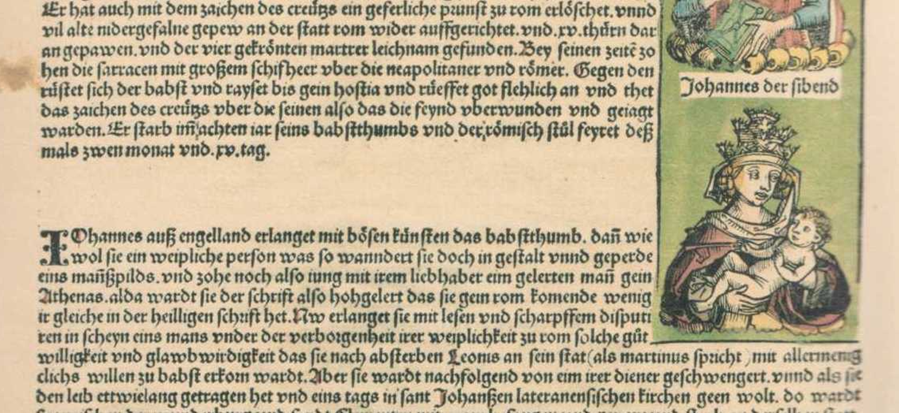 Er hat auch mit dem zaichen des creützs ein geferliche prunst zu rom erlöschet. vnnd
vil alte nidergefalne gepew an der statt rom wider auffgerichtet. vnd .xv. thürn dar
an gepawen. vnd der vier gekrönten martrer leichnam gefunden. Bey seinen zeitē zo
hen die sarracen mit großem schifheer vber die neapolitaner vnd römer. Gegen den
rüstet sich der babst vnd rayset bis gein hostia vnd rüeffet got flehlich an vnd thet
das zaichen des creützs vber die seinen also das die feynd vberwunden vnd geiagt
warden. Er starb im achten iar seins babstthumbs vnd der römisch stůl feyret deß
mals zwen monat vnd .xv. tag.
Johannes der sibend
IOhannes auß engelland erlanget mit bösen künsten das babstthumb. dañ wie
wol sie ein weipliche person was so wanndert sie doch in gestalt vnnd geperde
eins mañßpilds. vnd zohe noch also iung mit irem liebhaber eim gelerten mañ gein
Athenas. alda wardt sie der schrift also hohgelert das sie gein rom komende wenig
ir gleiche in der heilligen schrift het. Nw erlanget sie mit lesen vnd scharpffem disputi
ren in scheyn eins mans vnder der verborgenheit irer weiplichkeit zu rom solche güt
willigkeit vnd glawbwirdigkeit das sie nach absterben Leonis an sein stat (als martinus spricht) mit allermenig
clichs willen zu babst erkorn wardt. Aber sie wardt nachfolgend von eim irer diener geschwengert. vnnd als sie
den leib ettwielang getragen het vnd eins tags in sant Johanßen lateranensischen kirchen geen wolt. do wardt